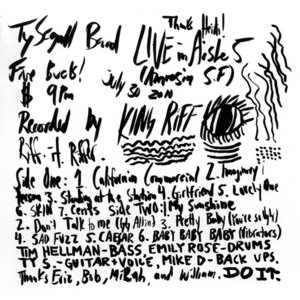 Ty Segall Band LIVE in Aisle 5
Thanks Heidi!
Five Bucks! (Amnesia S.F)
$ 9PM July 30 2011
Recorded by KING RIFF
Side One: 1. California Commercial 2. Imaginary
Person 3. Standing at the Station 4. Girlfriend 5. Lovely One
6. SKIN 7. Cents Side TWO: 1. My Sunshine
2. Don't Talk to me (GG Allin) 3. Pretty Baby
4. SAD FUZZ 5. CAESAR 6. BABY BABY BABY (Vibrators)
TIM HELLMAN - BASS EMILY ROSE - DRUMS
TY S. - GUITAR + VOICE, MIKE D - BACK UPS.
Thanks Eric, Bob, Mikah, and William. DO IT.